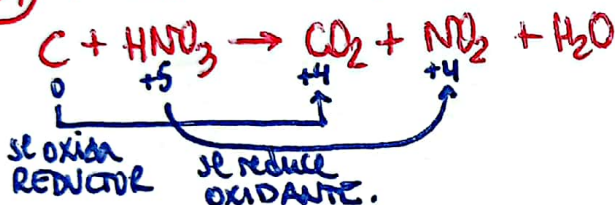 C + HNO₃ → CO₂ + NO₂ + H₂O
0 +5 +4 +4
se oxida se reduce
REDUCTOR OXIDANTE.